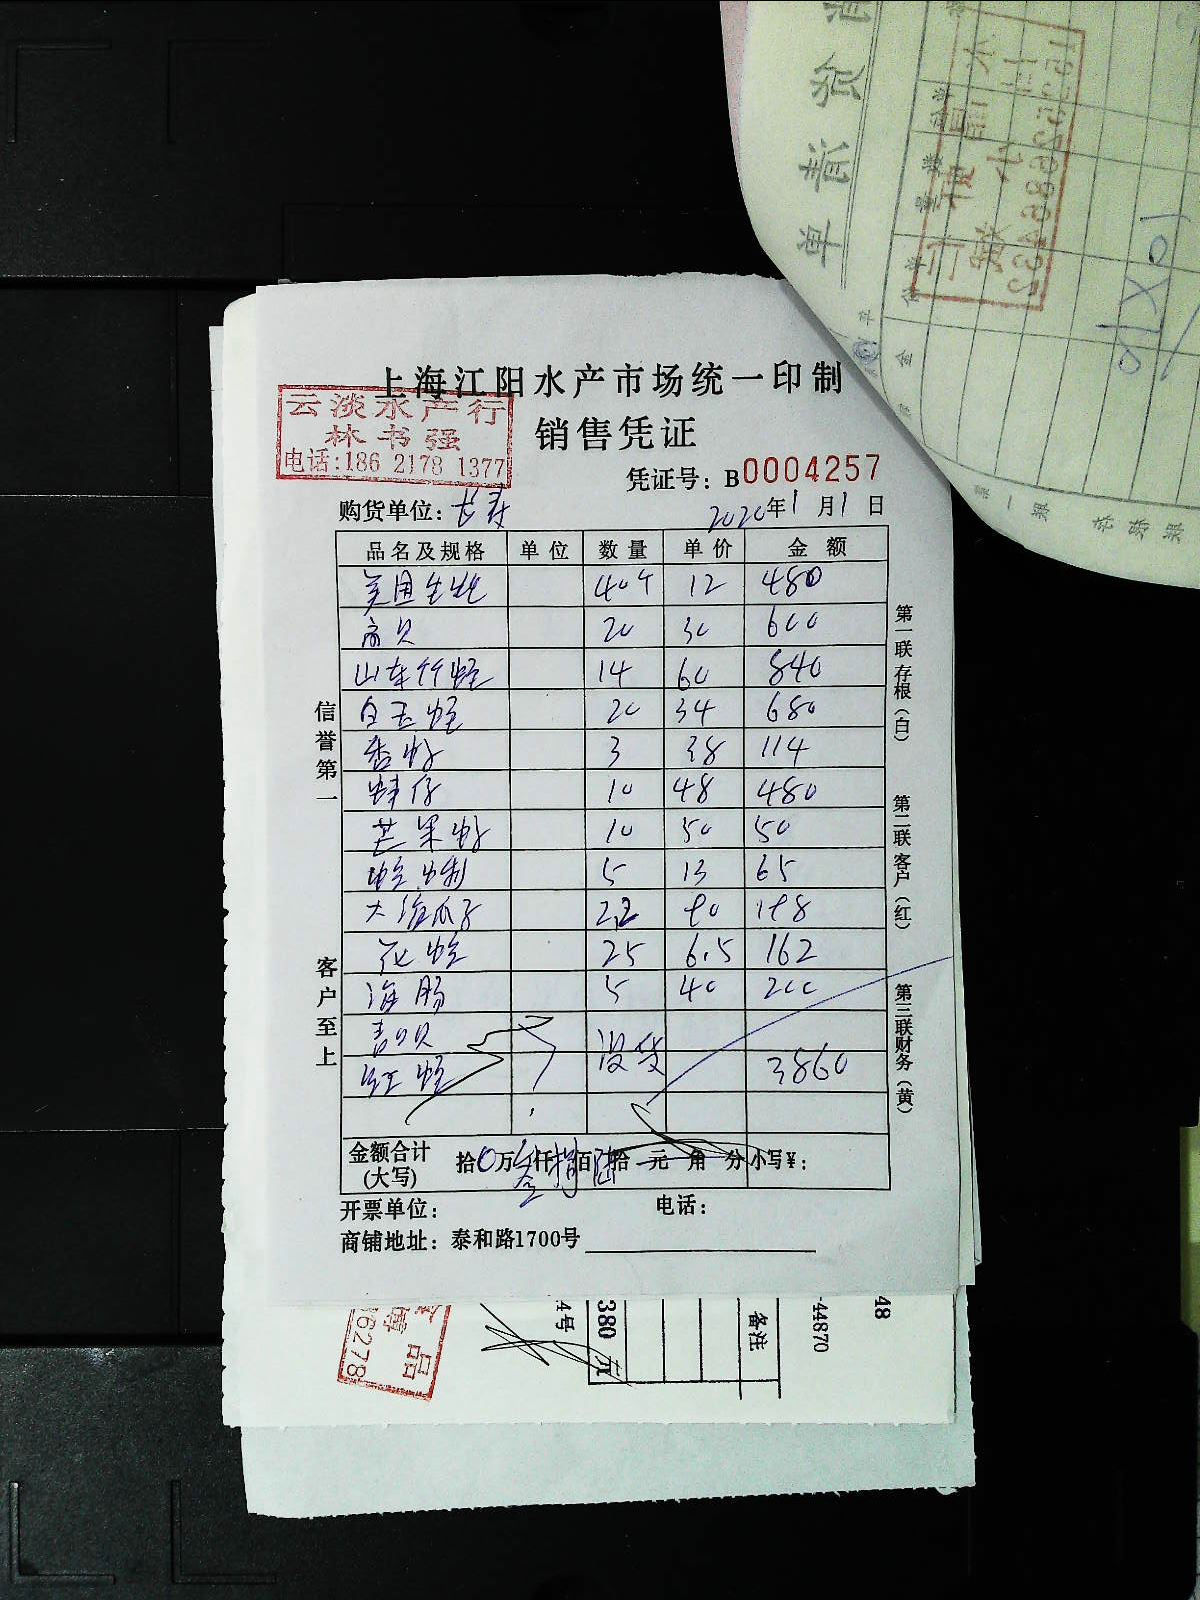 上海江阳水产市场统一印制
云淡水产行
林书强
电话:186 2178 1377
销售凭证
凭证号: B0004257
购货单位: 长寿
2020年1月1日
品名及规格 单位 数量 单价 金额
美国生蚝 40个 12 480
扇贝 20 30 600
山东竹蛏 14 60 840
白玉蛏 20 34 680
3 38 114
蚌仔 10 48 480
芒果 10 50 50
5 13 65
大海瓜子 2.2 90 198
花蛏 25 6.5 162
海肠 5 40 200
青口贝 没货
红蛏 3860
金额合计 (大写) 拾0万叁仟捌佰陆拾元角分 小写¥:
开票单位: 电话:
商铺地址: 泰和路1700号
信誉第一
客户至上
第一联存根(白)
第二联客户(红)
第三联财务(黄)
品
6278
4号
380 元
备注
-44870
48